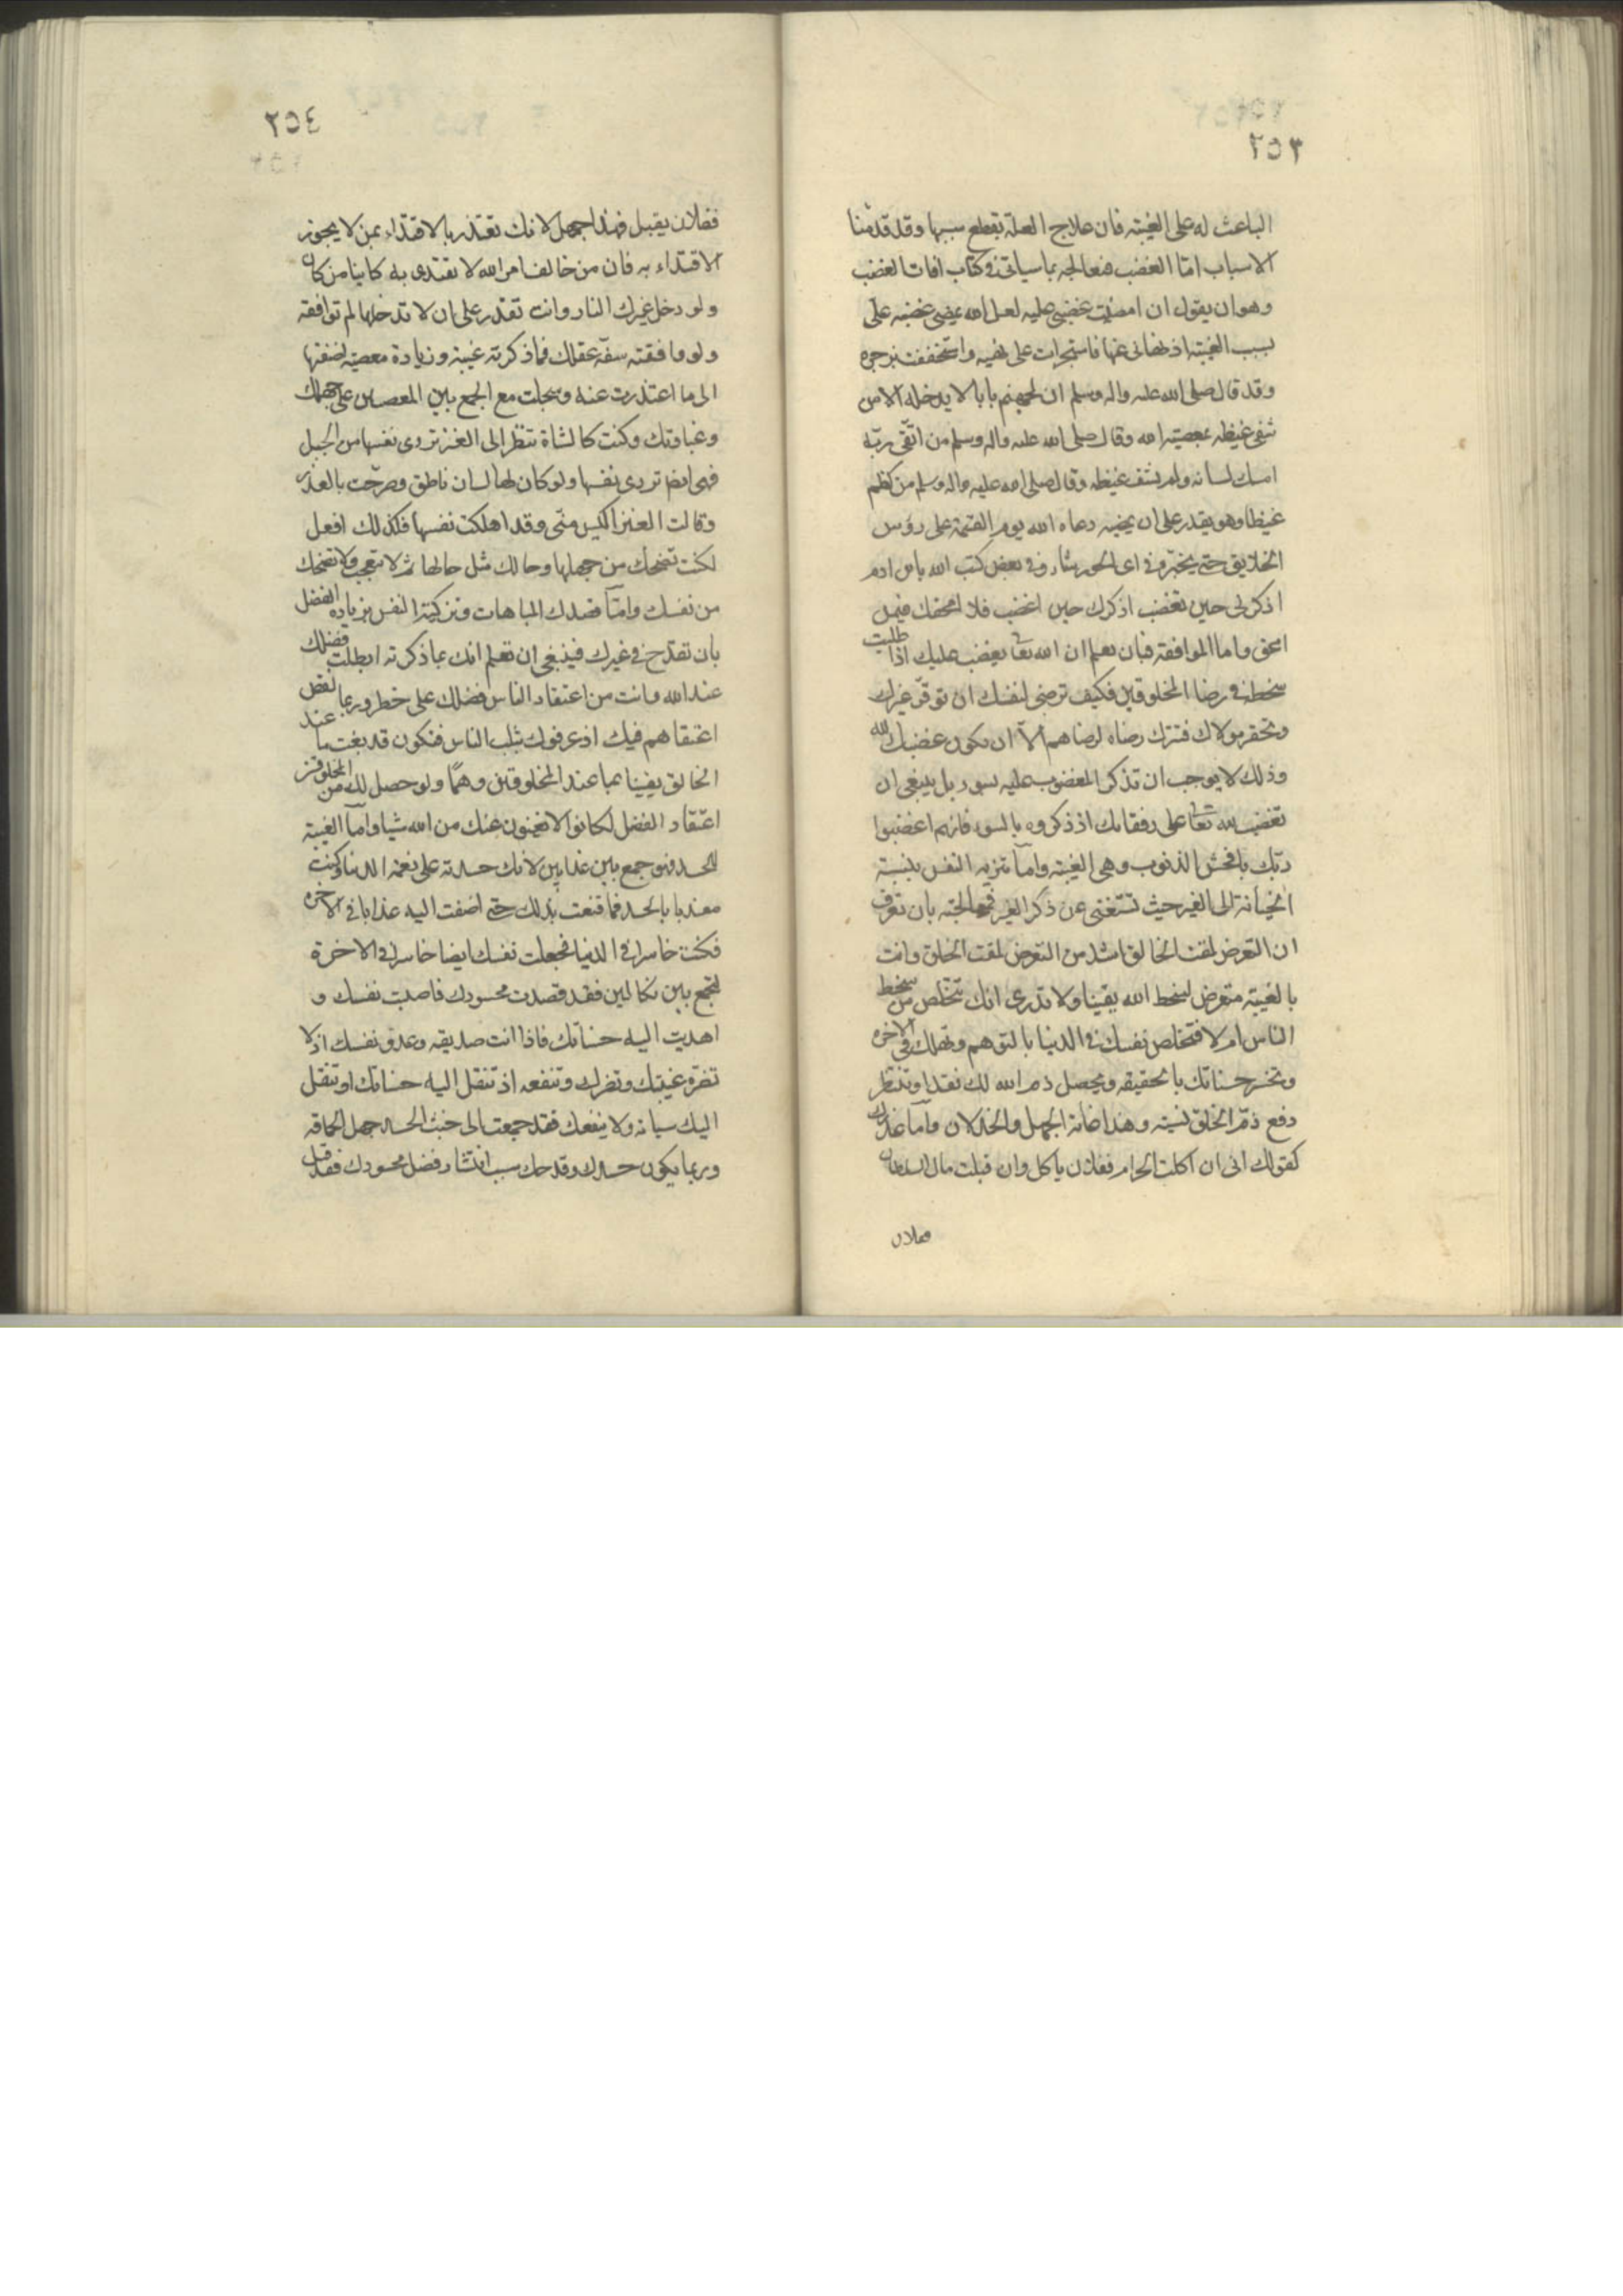 ٢٥٣
الباعث له على الغيبة فان علاج العلة بقطع سببها وقد قدمنا
الاسباب امّا الغضب فنعالجه بما سياتى فى كتاب افات الغضب
وهو ان يقول ان امضيت غضبى عليه لعل الله يمضى غضبه علىّ
بسبب الغيبة اذ نهانى عنها فاستجرات على نهيه واستخففت بزجره
وقد قال صلى الله عليه واله وسلم ان لجهنم بابا لا يدخله الا من
شفى غيظه بمعصية الله وقال صلى الله عليه واله وسلم من اتّقى ربّه
امسك لسانه ولم يشف غيظه وقال صلى الله عليه واله وسلم من كظم
غيظا وهو يقدر على ان يمضيه دعاه الله يوم القيمة على رؤس
الخلايق حتى يخيّره فى اى الحور شاء وفى بعض كتب الله يابن ادم
اذكرنى حين تغضب اذكرك حين اغضب فلا امحقك فيمن
امحق واما الموافقة فبان تعلم ان الله تعا يغضب عليك اذا طلبت
سخطه فى رضا المخلوقين فكيف ترضى لنفسك ان توقّر غيرك
وتحقر مولاك فتترك رضاه لرضاهم الّا ان يكون غضبك لله
وذلك لا يوجب ان تذكر المغضوب عليه بسوء بل ينبغى ان
تغضب لله تعا على رفقائك اذ ذكروه بالسوء فانهم اغضبوا
ربّك بافحش الذنوب وهى الغيبة وامّا تنزيه النفس بنسبة
الخيانة الى الغير حيث تستغنى عن ذكر الغير فمعالجته بان تعرف
ان التعرض لمقت الخالق اشد من التعرض لمقت الخلق وانت
بالغيبة متعرض لسخط الله يقينا ولا تدرى انك تتخلص من سخط
الناس ام لا فتخلص نفسك فى الدنيا بالتوهم وتهلك فى الاخرة
وتخسر حسناتك بالحقيقة ويحصل ذم الله لك نقدا وتنتظر
دفع ذمّ الخلق نسية وهذا غاية الجهل والخذلان وامّا عذرك
كقولك انى ان اكلت الحرام ففلان ياكل وان قبلت مال السلطان
ففلان
٢٥٤
ففلان يقبل فهذا جهل لانك تعتذر بالاقتداء بمن لا يجوز
الاقتداء به فان من خالف امر الله لا يقتدى به كاينا من كان
ولو دخل غيرك النار وانت تقدر على ان لا تدخلها لم توافقه
ولو وافقته سفّه عقلك فما ذكرته غيبة وزيادة معصية اضفتها
الى ما اعتذرت عنه وسجلت مع الجمع بين المعصيتين على جهلك
وغباوتك وكنت كالشاة تنظر الى العنز تردى نفسها من الجبل
فهى ايضا تردى نفسها ولو كان لها لسان ناطق وصرّحت بالعذر
وقالت العنز اكيس منّى وقد اهلكت نفسها فكذلك افعل
لكنت تضحك من جهلها وحالك مثل حالها ثم لا تعجب ولا تضحك
من نفسك وامّا قصدك المباهات وتزكية النفس بزيادة الفضل
بان تقدح فى غيرك فينبغى ان تعلم انك بما ذكرته ابطلت فضلك
عند الله وانت من اعتقاد الناس فضلك على خطر وربما نقص
اعتقادهم فيك اذ عرفوك بثلب الناس فتكون قد بعت ما عند
الخالق يقينا بما عند المخلوقين وهمًا ولو حصل لك من المخلوقين
اعتقاد الفضل لكانوا لا يغنون عنك من الله شيا وامّا الغيبة
للحسد فهو جمع بين عذابين لانك حسدته على نعمة الدنيا وكنت
معذبا بالحسد فما قنعت بذلك حتى اضفت اليه عذابا فى الاخرة
فكنت خاسرا فى الدنيا فجعلت نفسك ايضا خاسرا فى الاخرة
لتجمع بين نكالين فقد قصدت محسودك فاصبت نفسك و
اهديت اليه حسناتك فاذا انت صديقه وعدو نفسك اذ لا
تضره غيبتك وتضرك وتنفعه اذ تنقل اليه حسناتك او تنقل
اليك سياته ولا ينفعك فقد جمعت الى خبث الحسد جهل الحماقة
وربما يكون حسدك وقدحك سبب انتشار فضل محسودك فقد قيل